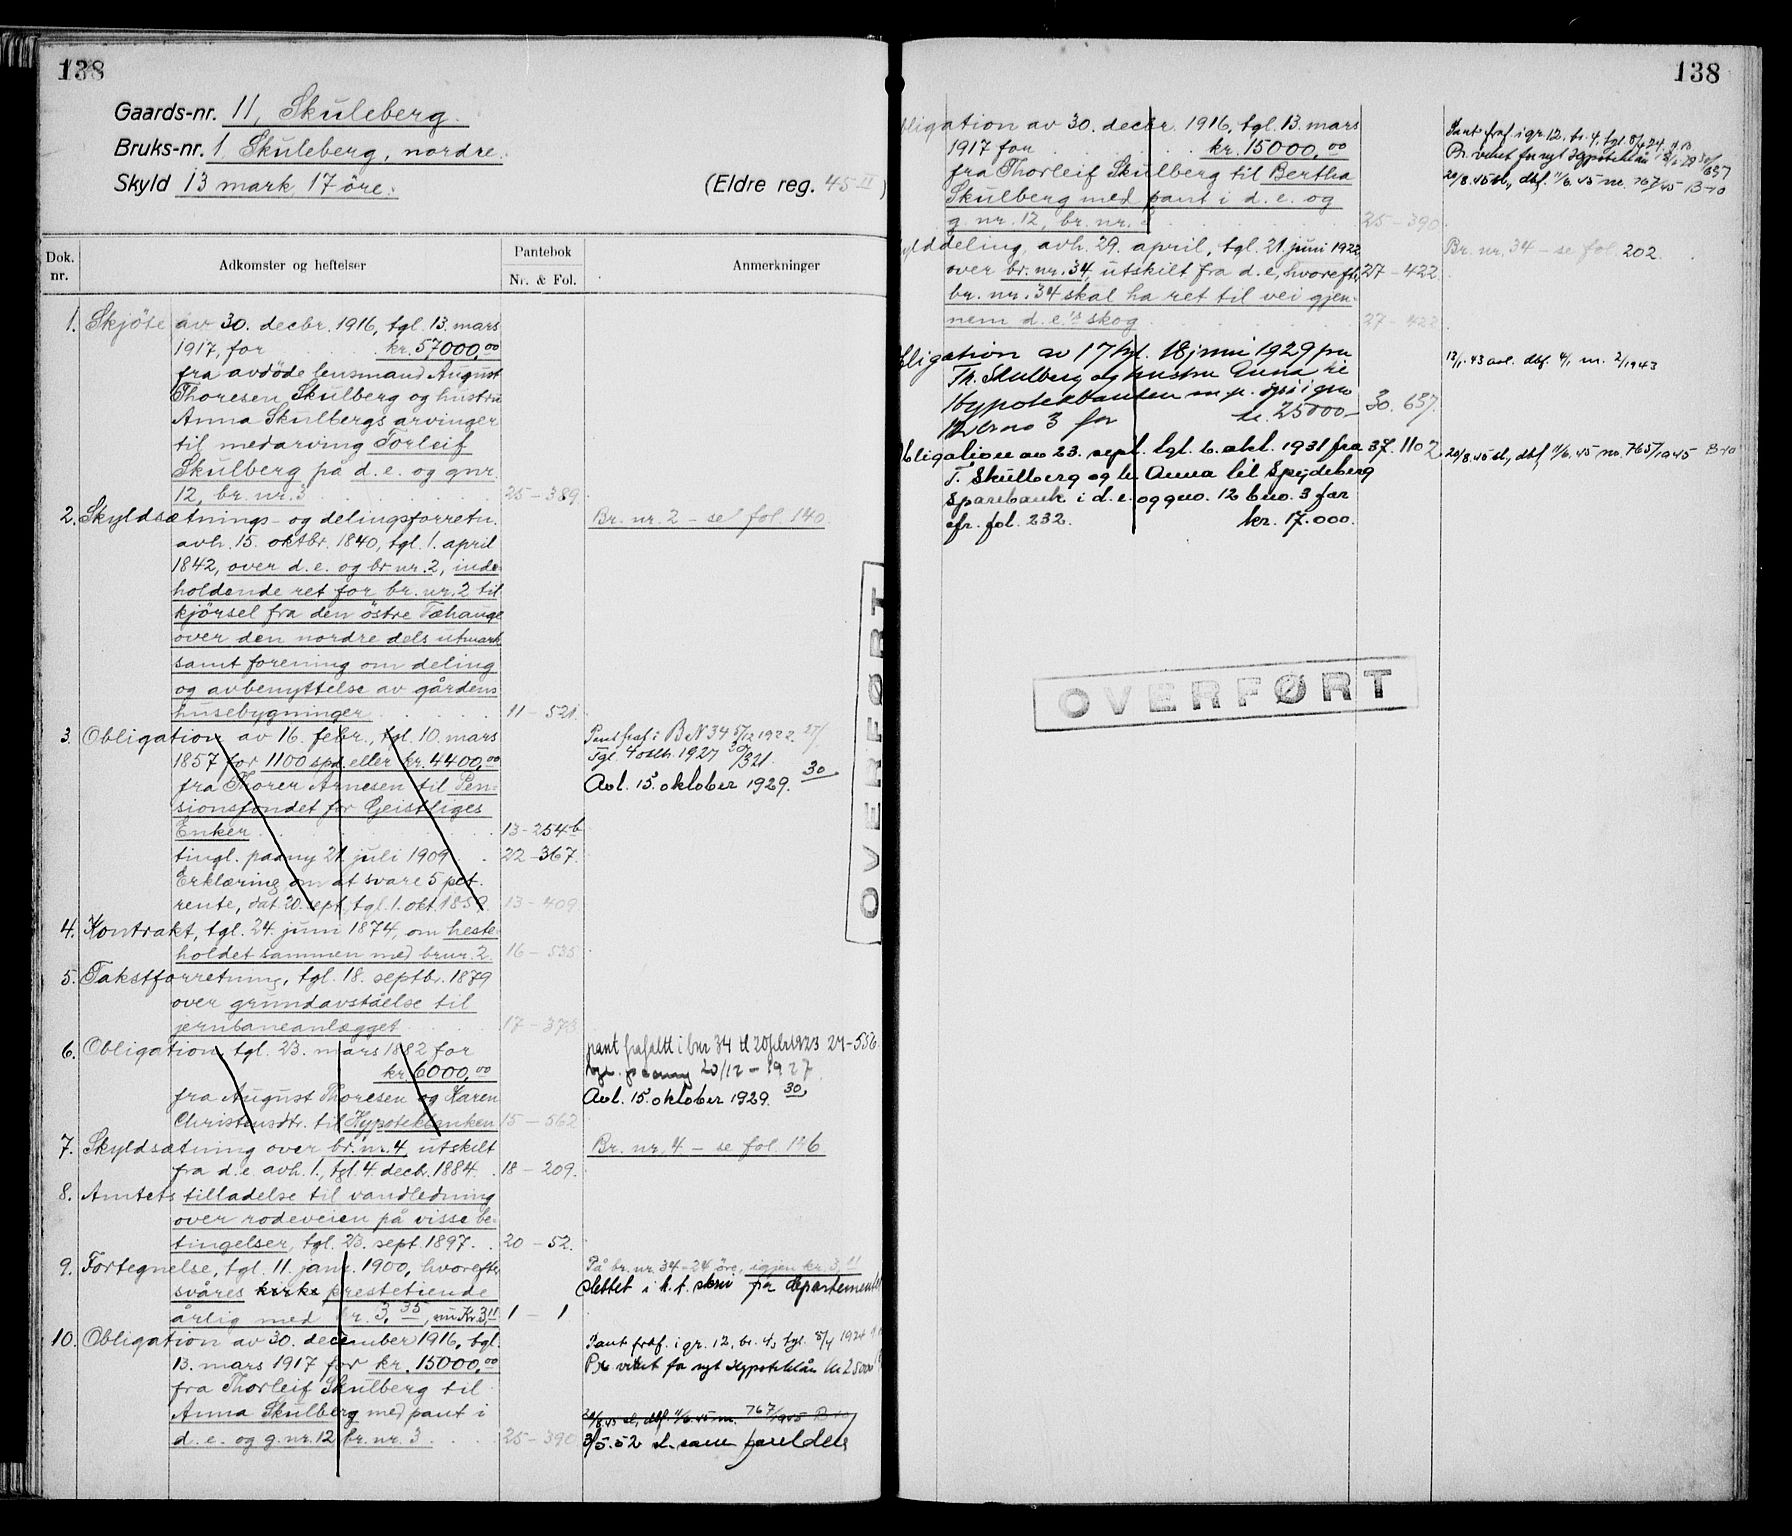 138
Gaards-nr. 11, Skuleberg.
Bruks-nr. 1 Skuleberg, nordre.
Skyld 13 mark 17 öre.
(Eldre reg. 45-II)
Dok. nr.
Adkomster og heftelser
Pantebok
Nr. & Fol.
Anmerkninger
1. Skjöte av 30. decbr. 1916, tgl. 13. mars
1917, for kr. 57000,00
fra avdöde lensmand August
Thoresen Skulberg og hustru
Anna Skulbergs arvinger
til medarving Torleif
Skulberg på d. e. og gnr.
12, br. nr. 3 25-389
2. Skyldsætnings- og delingsforretn.
Br. nr. 2 - se fol 140.
avh. 15. oktbr. 1840, tgl. 1. april
1842, over d. e. og br nr. 2, inde-
holdende ret for br. nr. 2 til
kjörsel fra den östre Fæhauge
over den nordre dels utmark
samt forening om deling
og avbenyttelse av gårdens
husebygninger 11-521
3. Obligation av 16. febr., tgl. 10. mars
1857 for 1100 spd. eller kr. 4400,00
fra Thorer Arnesen til Pen-
sionsfondet for Geistliges
Enker 13-254b
Pantfraf. i BN 34 5/12 1922.
Tgl. 4 oktb. 1927 30/321.
Avl. 15. oktober 1929. 30
tingl. paany 21. juli 1909 22-367.
Erklæring om at svare 5 pct.
rente, dat. 20. sept., tgl. 1. okt. 1859. 13-409
4. Kontrakt, tgl. 24. juni 1874, om heste-
holdet sammen med brnr. 2. 16-535
5. Takstforretning, tgl. 18. septbr. 1879
over grundavståelse til
jernbaneanlægget 17-373
6. Obligation, tgl. 23. mars 1882 for
kr. 6000,00
fra August Thoresen og Karen
Christensdtr. til Hypotekbanken 15-562
pant frafaldt i bnr 34 tl 20 febr 1923 27-556.
tgl. paany 20/12-1927
Avl. 15. oktober 1929. 30
7. Skyldsætning over br. nr. 4, utskilt
Br. nr. 4 - se fol 146
fra d. e. avh. 1., tgl. 4 decbr. 1884. 18-209.
8. Amtets tilladelse til vandledning
over rodeveien på visse be-
tingelser, tgl. 23. sept. 1897. 20-52.
9. Fortegnelse, tgl. 11. janr. 1900, hvorefter
svares kirke prestetiende
årlig med kr. 3.35, nu kr. 3,11 1-1
På br. nr. 34-24 öre, igjen kr. 3,11
Slettet i h. t. skriv fra departementet
10. Obligation av 30. december 1916, tgl.
13. mars 1917 for kr. 15000,00
fra Thorleif Skulberg til
Anna Skulberg med pant i
d. e. og g. nr. 12 br. nr. 3. 25-390
Pant fraf. i gr. 12, br. 4, tgl. 5/4 1924
Pr. veket for nyt Hypoteklån kr 25000
20/8.45 sl., dbf. 11/6.45 nr. 767/1945 B-10
3/5.52 sl. samme foreldet
OVERFØRT
138
bligation av 30. decbr. 1916, tgl. 13. mars
1917 for kr. 15000,00
fra Thorleif Skulberg til Bertha
Skulberg med pant i d. e. og
g. nr. 12, br. nr. 25-390
Pant fraf. i gr. 12, br. 4, tgl. 5/4 24.
Pr. veket for nyt Hypoteklån
20/8.45 sl., dbf. 11/6.45 nr. 767/45 B-10
ylddeling, avh. 29. april, tgl. 21. juni 1922
Br. nr. 34 - se fol. 202
over br. nr. 34, utskilt fra d. e., hvorefter 27-422
br. nr. 34 skal ha ret til vei gjen-
nem d. e.'s skog 27-422
bligation av 17 tgl. 18 juni 1929 fra
12/1.43 avl. dbf. 4/1 nr. 2/1943
Th. Skulberg og hustru Anna til
Hypotekbanken m. p. også i gno
12 brno 3 for kr. 25000- 30. 637.
bligation av 23. sept. tgl. 6. okt. 1931 fra 37. 1102
20/8.45 sl., dbf. 11/6.45 nr. 765/1945 B-10
T. Skulberg og h. Anna til Spydeberg
Sparebank i d. e. og gno. 12 bno. 3 for
cfr. fol. 232. kr. 17.000.
OVERFØRT